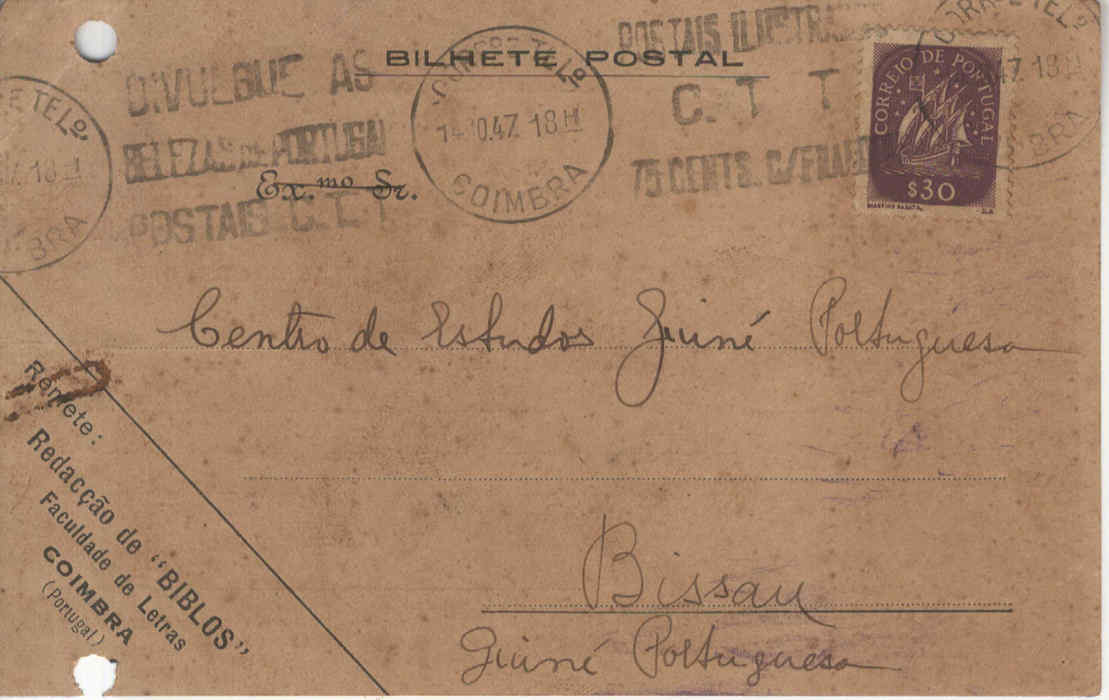 BILHETE POSTAL
DIVULGUE AS
BELEZAS DE PORTUGAL
POSTAIS C. T. T
COIMBRA
14.10.47. 18 H
POSTAIS
C. T T
75 CENTS.
CORREIO DE PORTUGAL
$30
Ex.mo Sr.
Centro de Estudos Guiné Portuguesa
Bissau
Guiné Portuguesa
Remete:
Redacção de "BIBLOS"
Faculdade de Letras
COIMBRA
(Portugal)